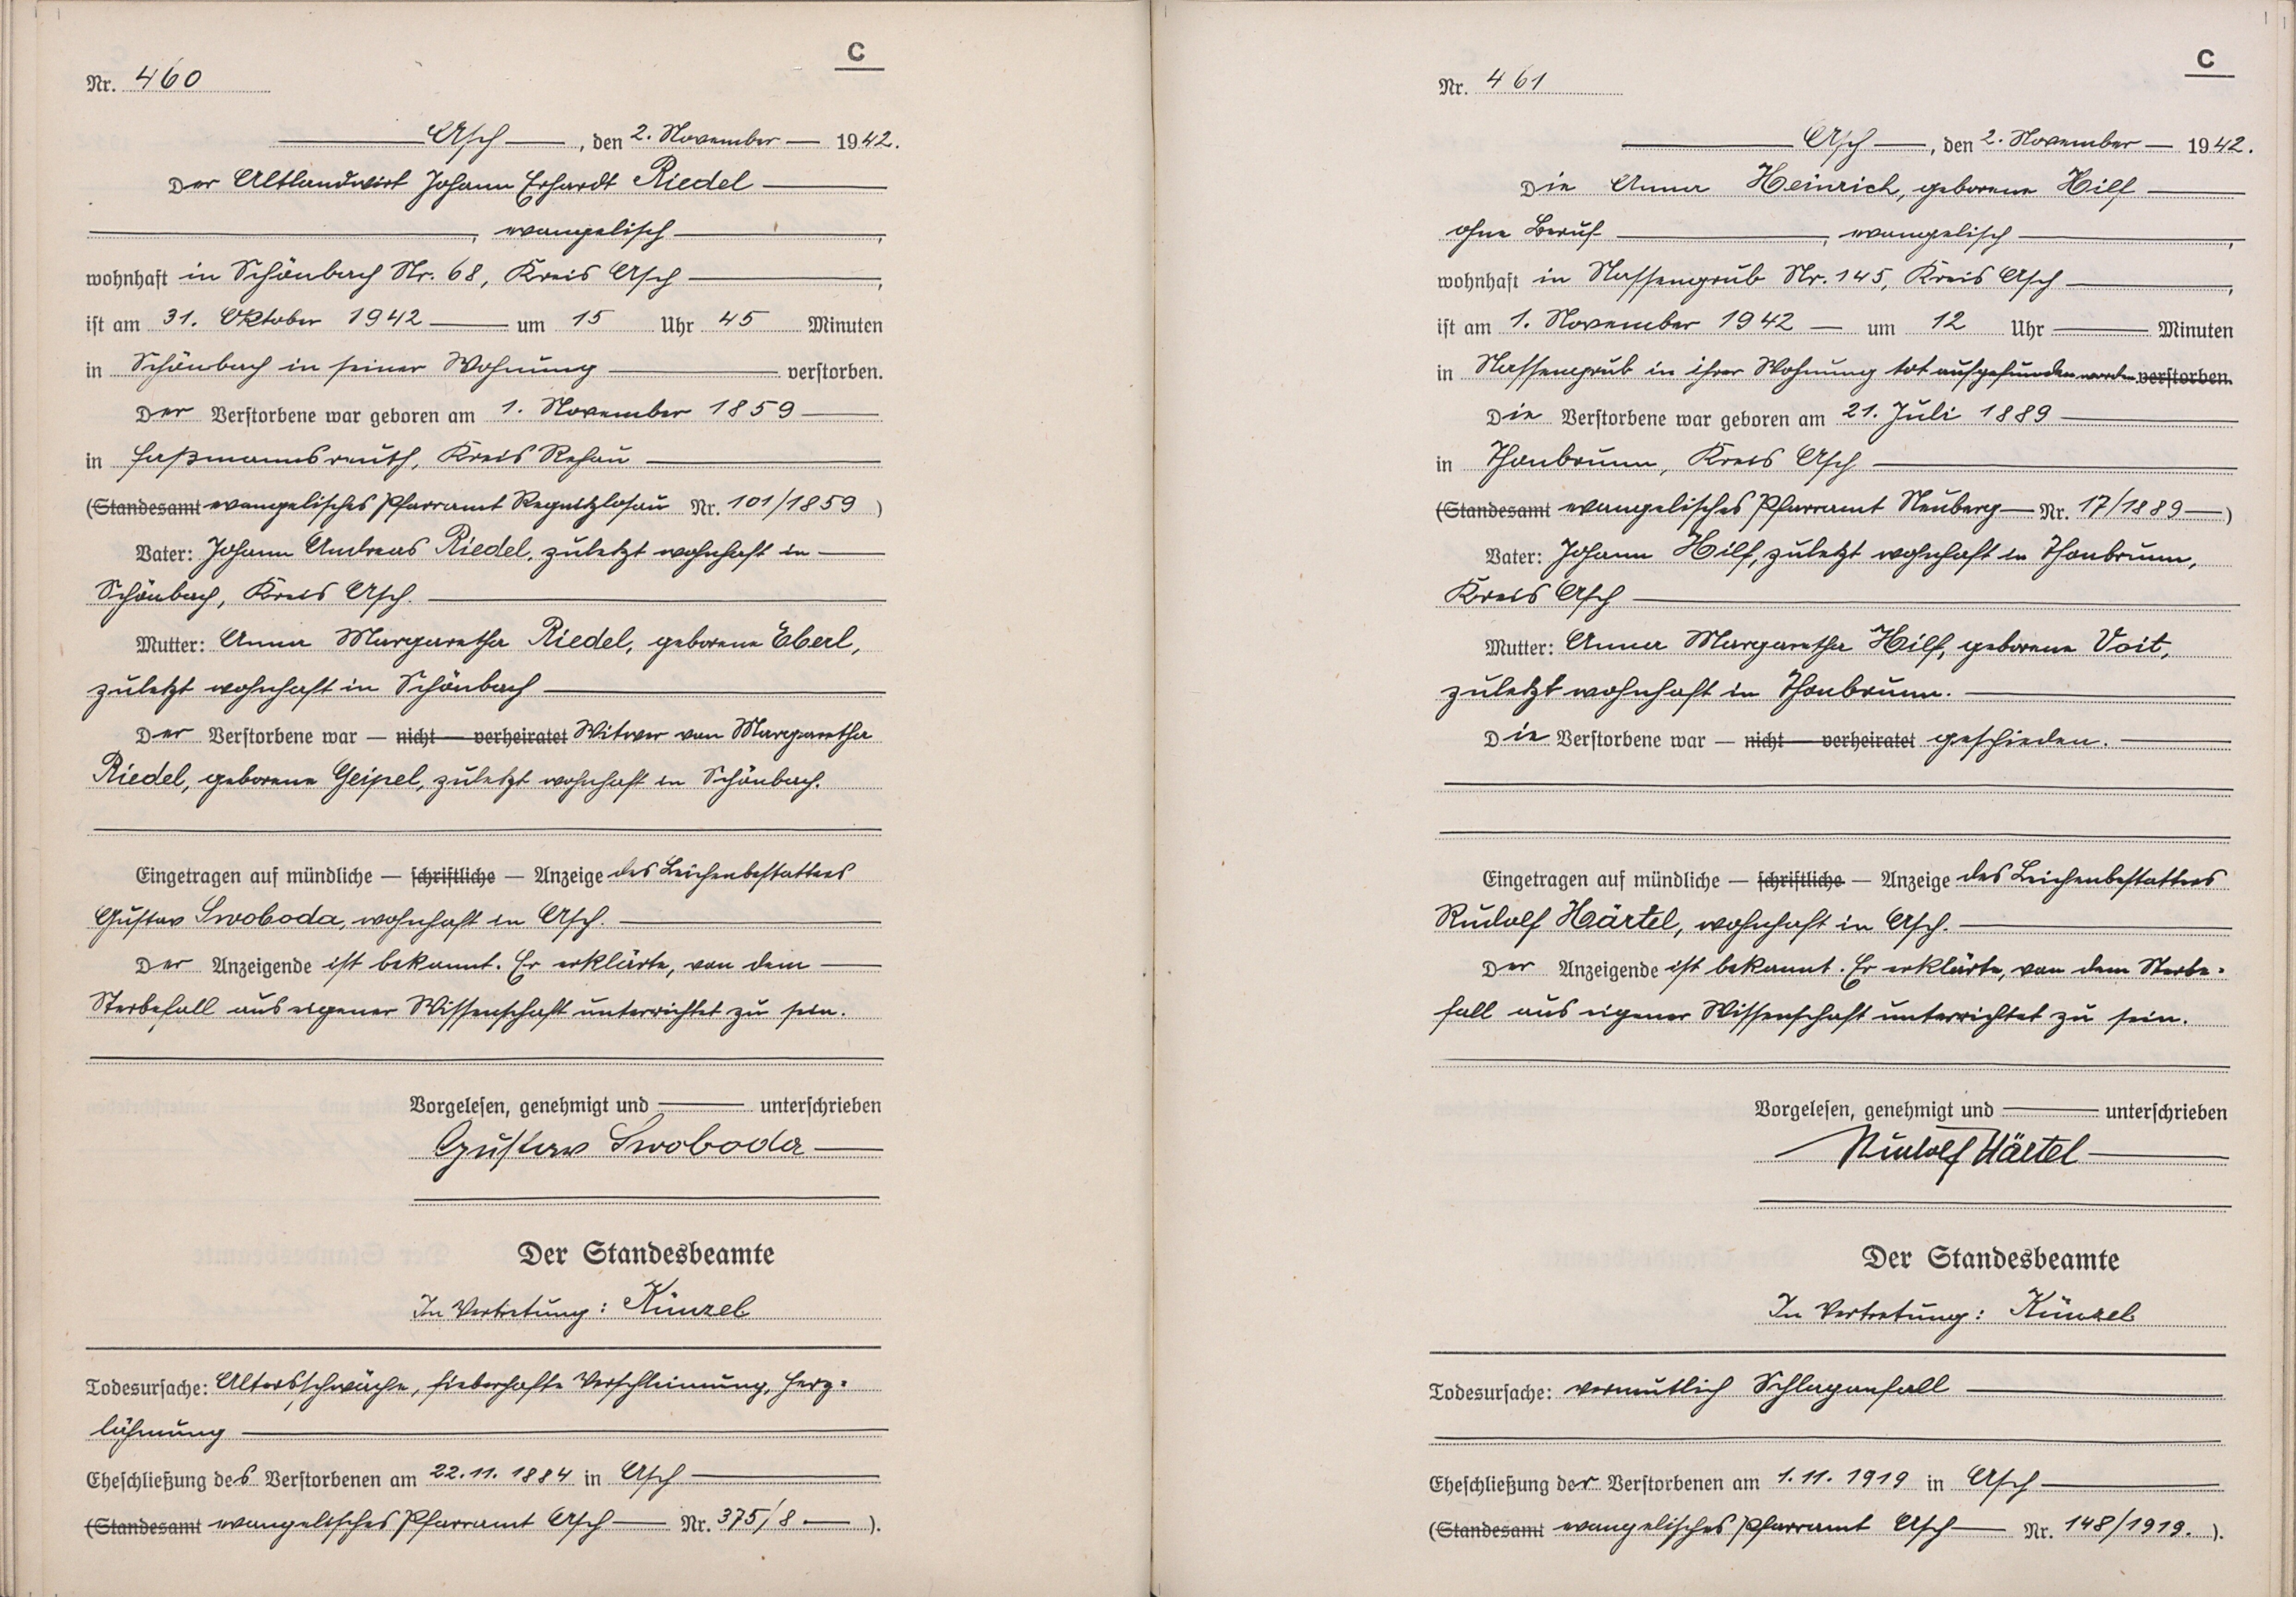 C
Nr. 460
Asch, den 2. November 1942.
Der Altlandwirt Johann Erhardt Riedel
, evangelisch,
wohnhaft in Schönbach Nr. 68, Kreis Asch,
ist am 31. Oktober 1942 um 15 Uhr 45 Minuten
in Schönbach in seiner Wohnung verstorben.
Der Verstorbene war geboren am 1. November 1859
in Faßmannsreuth, Kreis Rehau
(Standesamt evangelisches Pfarramt Regnitzlosau Nr. 101/1859)
Vater: Johann Andreas Riedel, zuletzt wohnhaft in
Schönbach, Kreis Asch.
Mutter: Anna Margaretha Riedel, geborene Eberl,
zuletzt wohnhaft in Schönbach
Der Verstorbene war — nicht — verheiratet Witwer von Margaretha
Riedel, geborene Geipel, zuletzt wohnhaft in Schönbach.
Eingetragen auf mündliche — schriftliche — Anzeige des Leichenbestatters
Gustav Swoboda, wohnhaft in Asch.
Der Anzeigende ist bekannt. Er erklärte, von dem
Sterbefall aus eigener Wissenschaft unterrichtet zu sein.
Vorgelesen, genehmigt und unterschrieben
Gustav Swoboda
Der Standesbeamte
In Vertretung: Künzel
Todesursache: Altersschwäche, fieberhafte Verschleimung, Herz-
lähmung
Eheschließung des Verstorbenen am 22.11.1884 in Asch
(Standesamt evangelisches Pfarramt Asch — Nr. 375/8 —).
C
Nr. 461
Asch, den 2. November 1942.
Die Anna Heinrich, geborene Hilf
ohne Beruf, evangelisch,
wohnhaft in Nassengrub Nr. 145, Kreis Asch,
ist am 1. November 1942 um 12 Uhr — Minuten
in Nassengrub in ihrer Wohnung tot aufgefunden worden verstorben.
Die Verstorbene war geboren am 21. Juli 1889
in Thonbrunn, Kreis Asch
(Standesamt evangelisches Pfarramt Neuberg — Nr. 17/1889 —)
Vater: Johann Hilf, zuletzt wohnhaft in Thonbrunn,
Kreis Asch
Mutter: Anna Margaretha Hilf, geborene Voit,
zuletzt wohnhaft in Thonbrunn.
Die Verstorbene war — nicht — verheiratet geschieden.
Eingetragen auf mündliche — schriftliche — Anzeige des Leichenbestatters
Rudolf Härtel, wohnhaft in Asch.
Der Anzeigende ist bekannt. Er erklärte, von dem Sterbe-
fall aus eigener Wissenschaft unterrichtet zu sein.
Vorgelesen, genehmigt und unterschrieben
Rudolf Härtel
Der Standesbeamte
In Vertretung: Künzel
Todesursache: vermutlich Schlaganfall
Eheschließung der Verstorbenen am 1.11.1919 in Asch
(Standesamt evangelisches Pfarramt Asch — Nr. 148/1919.).